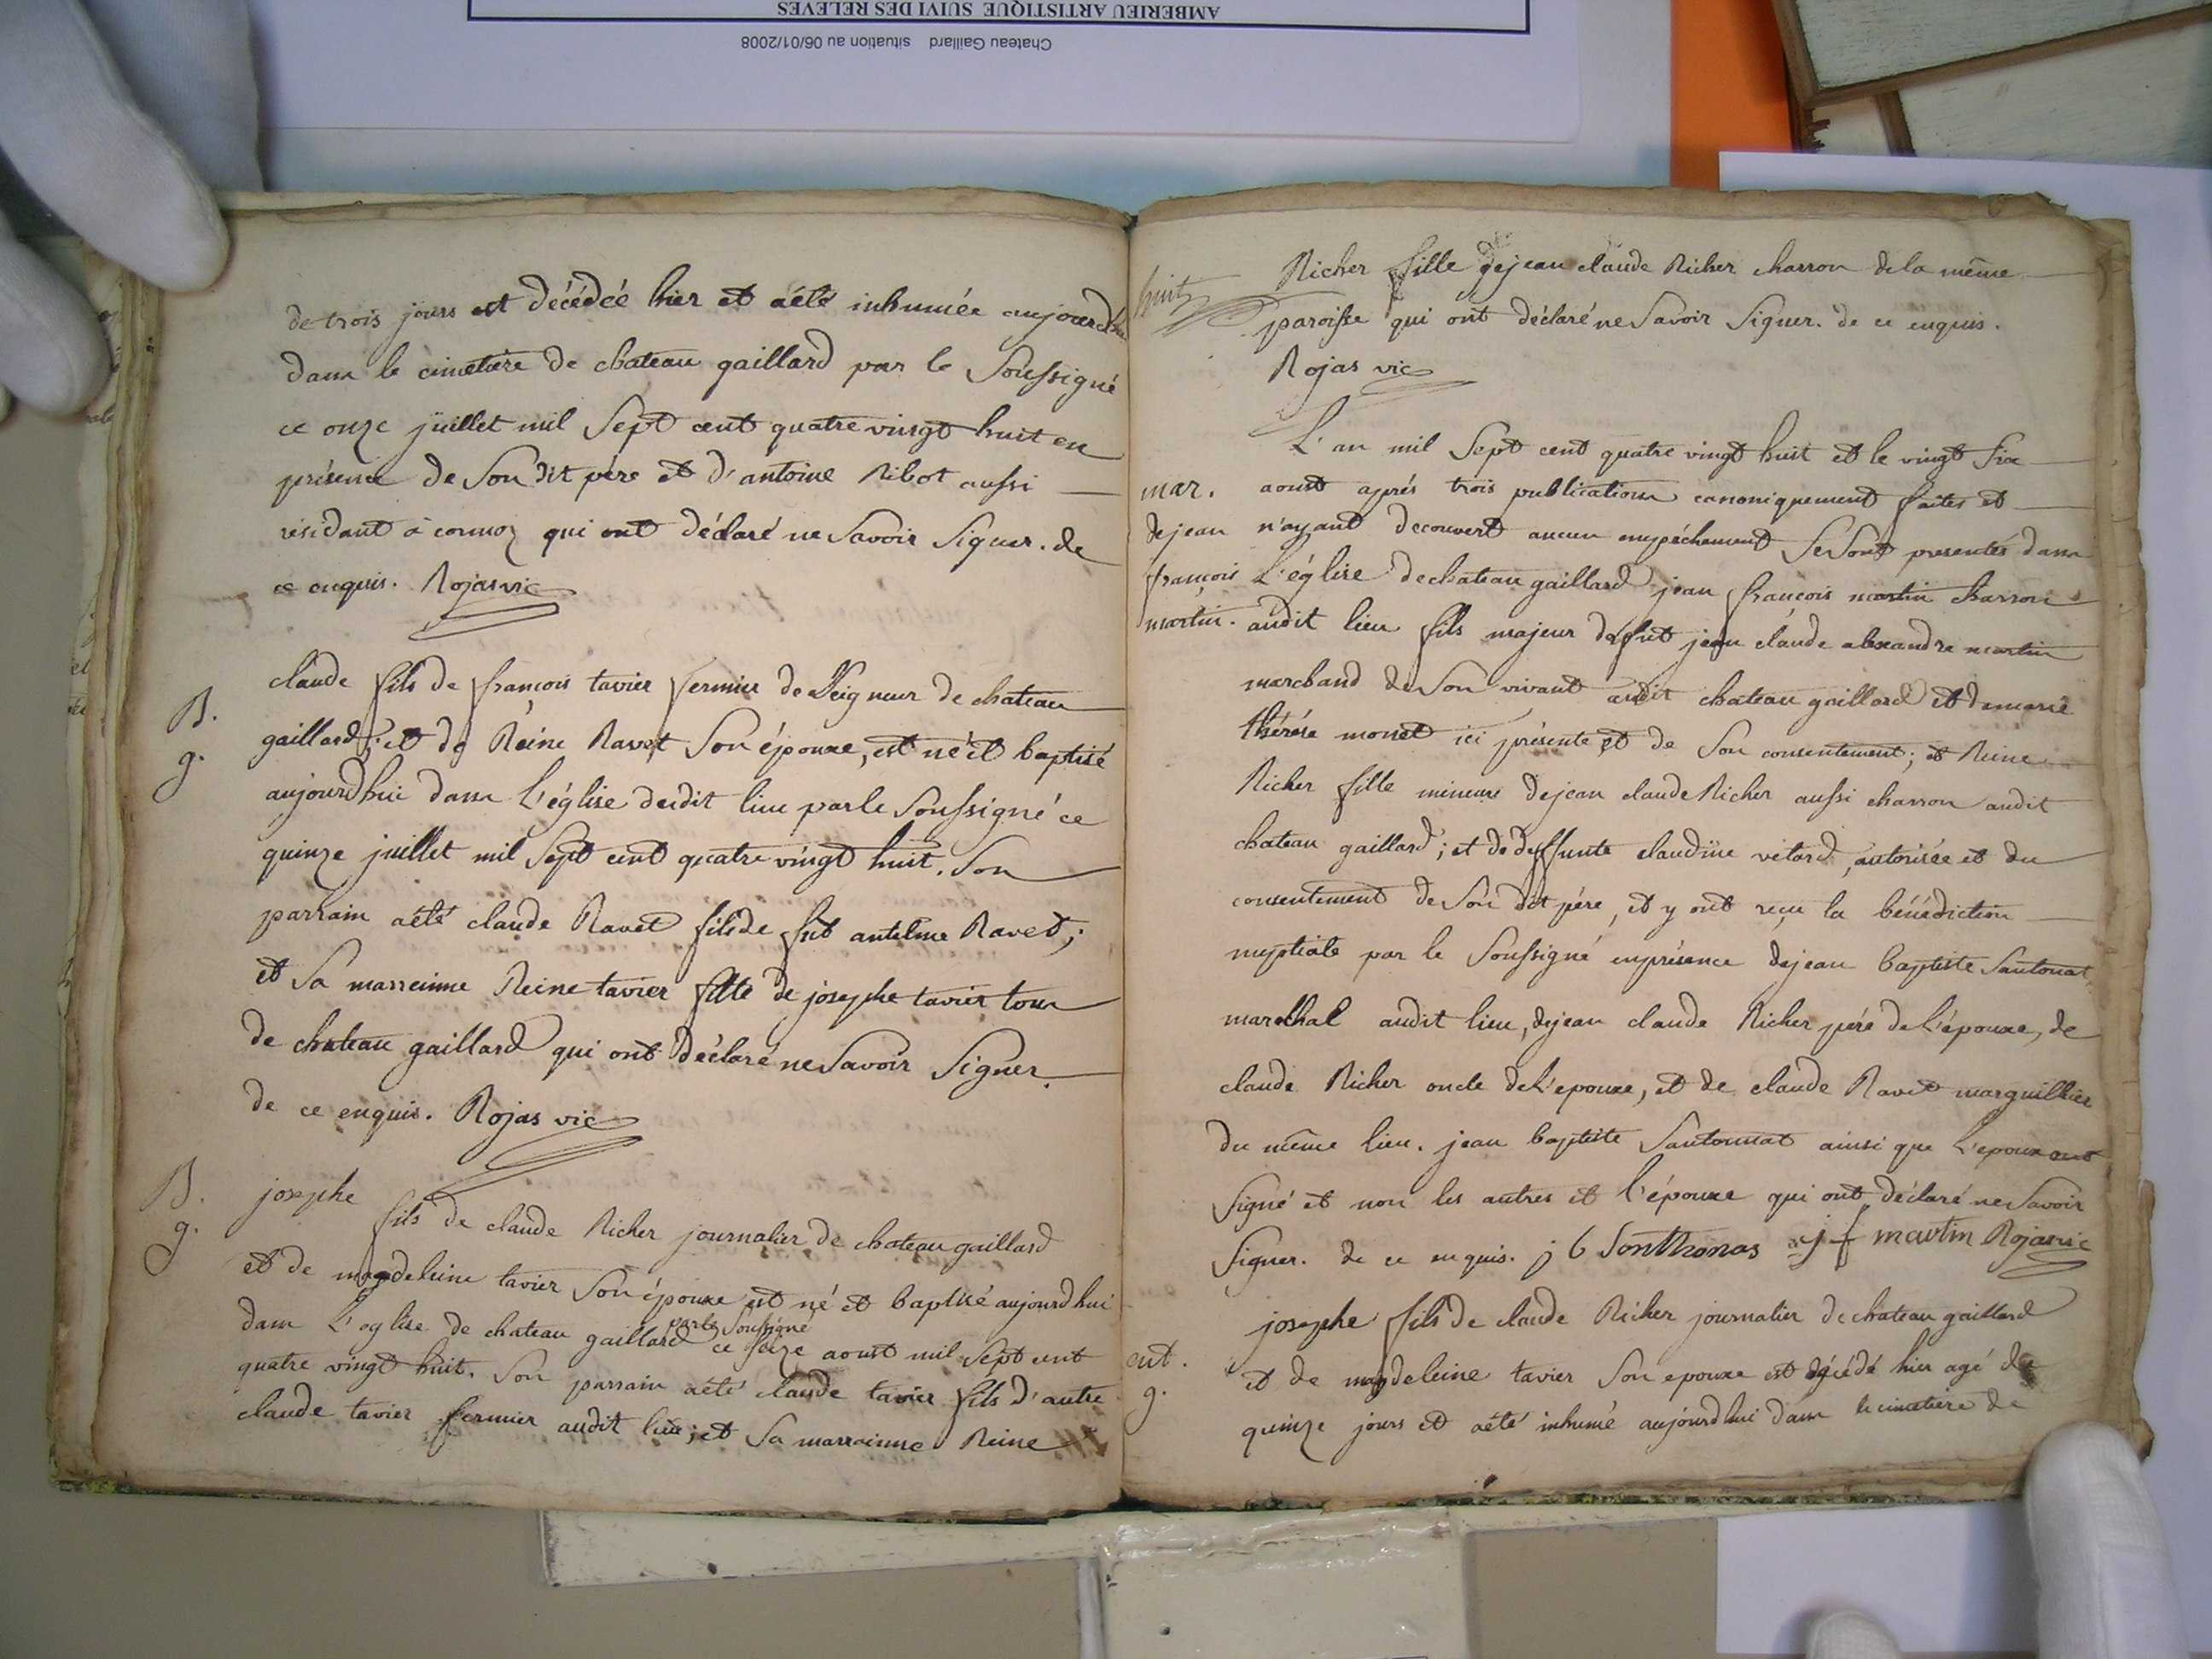 AMBERIEU ARTISTIQUE SUIVI DES RELEVES
Chateau Gaillard situation au 06/01/2008
de trois jours est décédée hier et a été inhumée aujourdhui
dans le cimetière de chateau gaillard par le Soussigné
ce onze juillet mil Sept cent quatre vingt huit en
présence de Son dit père et d'antoine Ribot aussi
résidant à cormoz qui ont déclaré ne Savoir Signer. de
ce enquis. Rojas vic
B.
g.
claude fils de françois tavier fermier de Seigneur de chateau
gaillard; et de Reine Ravet Son épouxe, est né et baptisé
aujourdhui dans L'église dudit lieu par le Soussigné ce
quinze juillet mil Sept cent quatre vingt huit. Son
parrain a été claude Ravet fils de fut antelme Ravet;
et Sa marreinne Reine tavier fille de josephe tavier tous
de chateau gaillard qui ont déclaré ne Savoir Signer.
de ce enquis. Rojas vic
B.
g.
josephe fils de claude Richer journalier de chateau gaillard
et de magdeleine tavier Son épouxe est né et baptisé aujourdhui
dans L'eglise de chateau gaillard par le Soussigné ce seize aoust mil Sept cent
quatre vingt huit. Son parrain a été claude tavier fils d'autre
claude tavier fermier audit lieu; et Sa marrainne Reine
huit
Richer fille de jean claude Richer charron de la même
paroisse qui ont déclaré ne Savoir Signer. de ce enquis.
Rojas vic
mar.
de jean
françois
martin.
L'an mil Sept cent quatre vingt huit et le vingt six
aoust après trois publications canoniquement faites et
n'ayant decouvert aucun empéchement Se Sont presentés dans
L'église de chateau gaillard jean françois martin charron
audit lieu fils majeur de fut jean claude alexandre martin
marchand de Son vivant audit chateau gaillard et de marie
thérése monet ici présente et de Son consentement; et Reine
Richer fille mineure de jean claude Richer aussi charron audit
chateau gaillard; et de deffunte claudine vetard, autorisée et du
consentement de Son dit père, et y ont reçu la bénédiction
nuptiale par le Soussigné en présence de jean baptiste Santonat
marechal audit lieu, de jean claude Richer père de L'épouxe, de
claude Richer oncle de L'epouxe, et de claude Ravet marguillier
du même lieu. jean baptiste Santonnat ainsi que L'epoux ont
Signé et non les autres et l'épouxe qui ont déclaré ne Savoir
Signer. de ce enquis. j b Sonthonas j f martin Rojas vic
ent.
g.
josephe fils de claude Richer journalier de chateau gaillard
et de magdeleine tavier Son epouxe est décédé hier agé de
quinze jours et a été inhumé aujourdhui dans le cimetière de